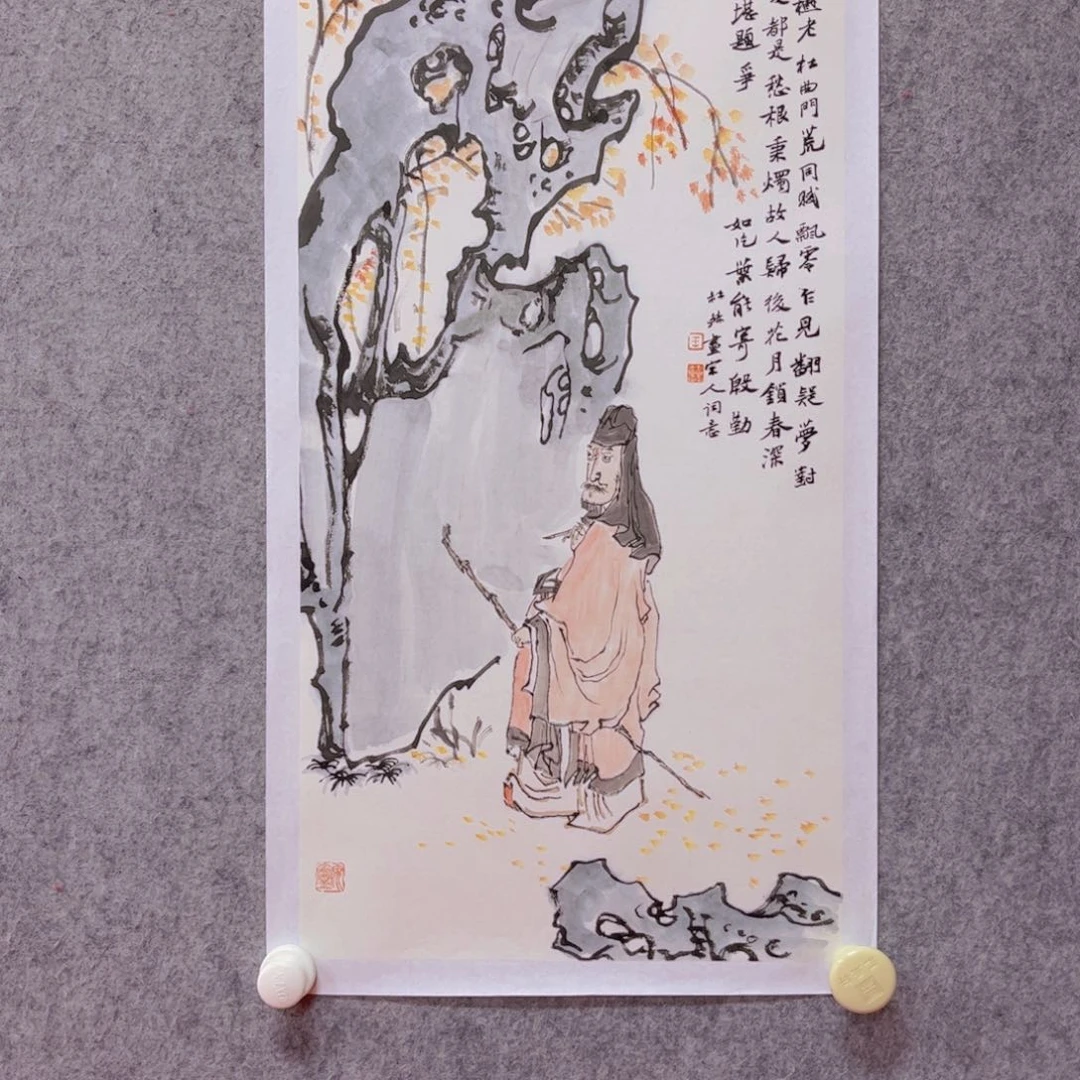 老杜曲門荒同賦飄零乍見翻疑夢對
都是愁根秉燭故人歸後花月鎖春深
堪題爭如片葉能寄殷勤
畫宋人词意